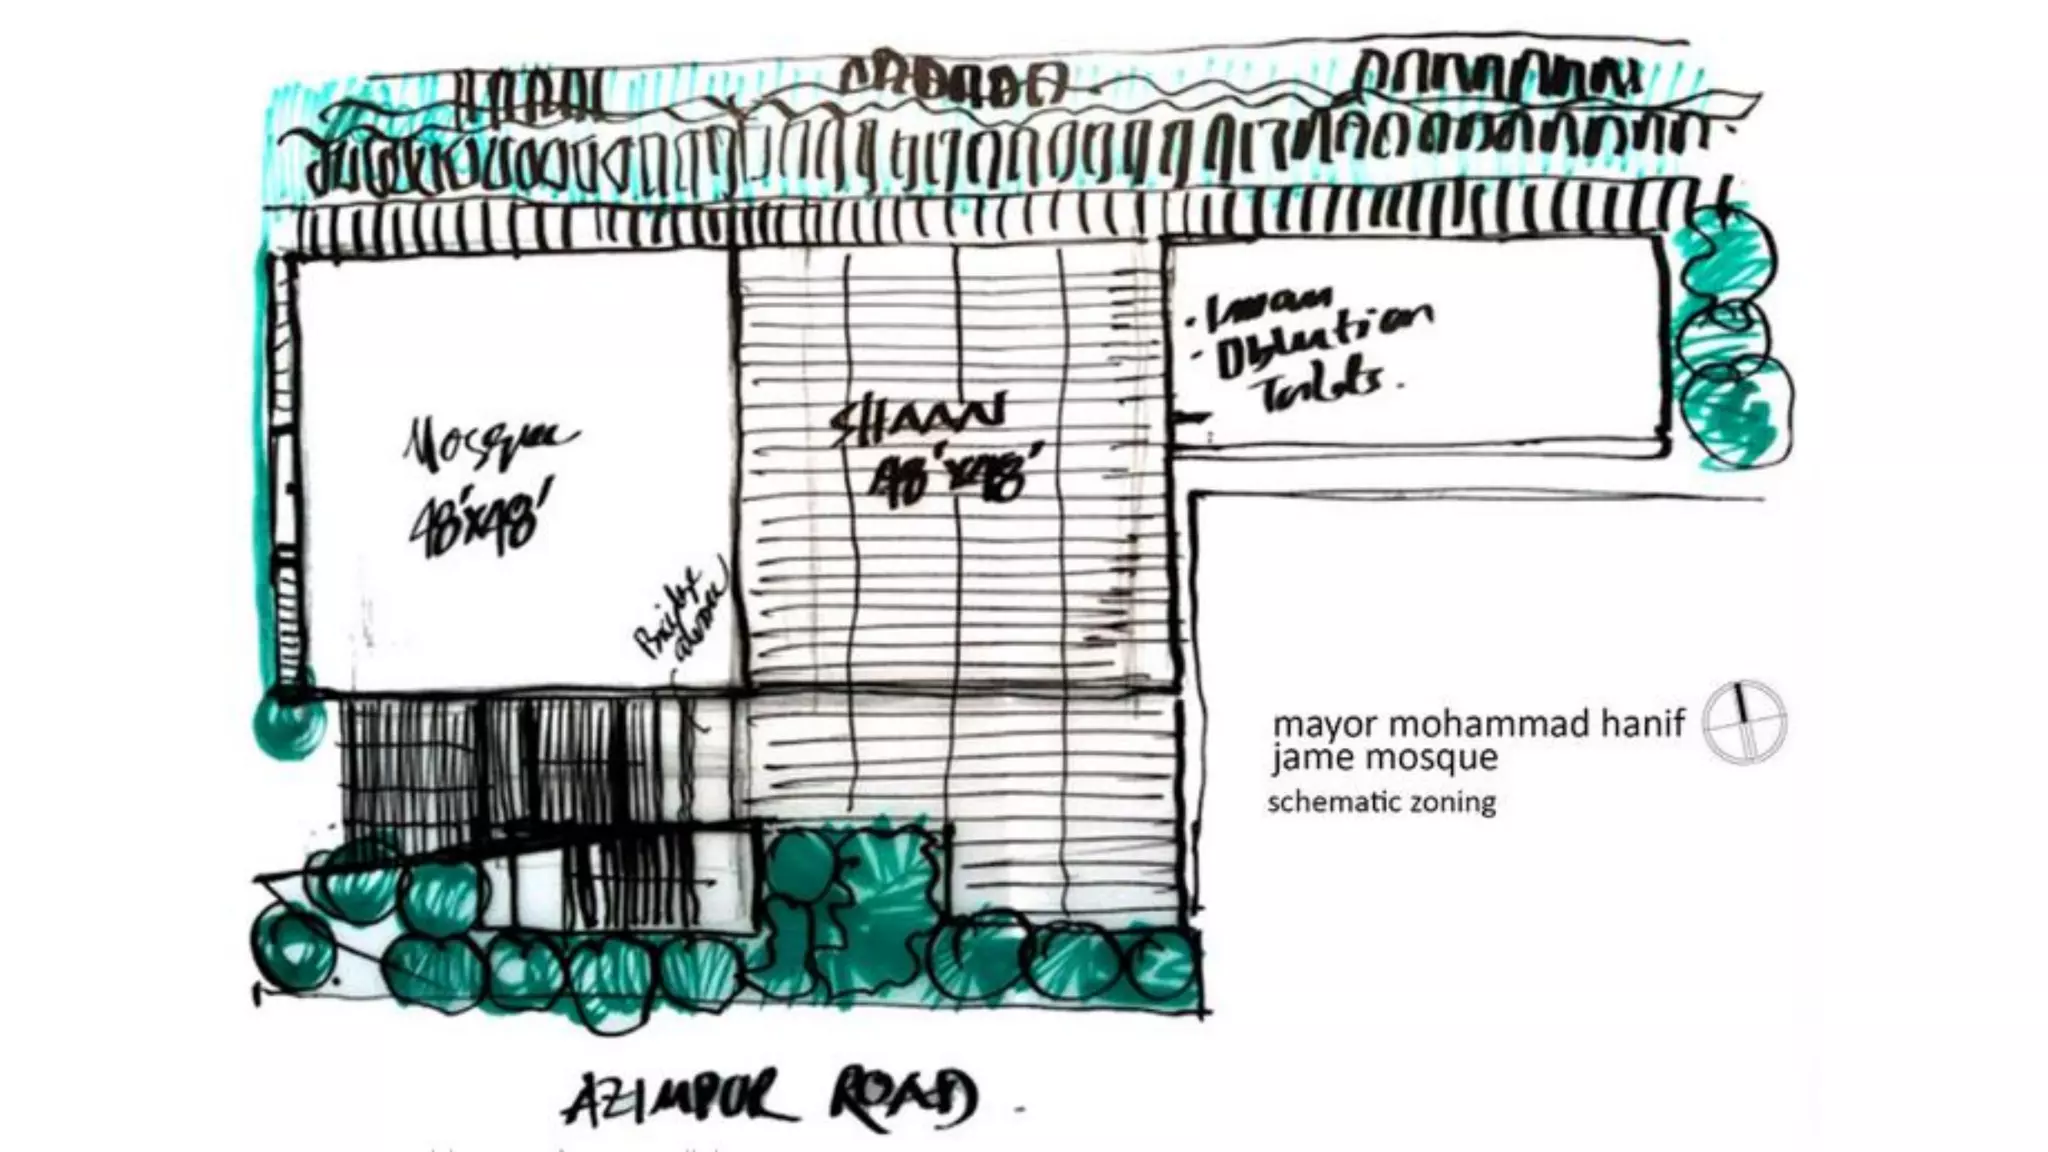 Mosque
48'x48'
SHAAN
48'x48'
· Imam
· Oblution
Toilets.
Bridge
above
mayor mohammad hanif
jame mosque
schematic zoning
AZIMPUR ROAD.